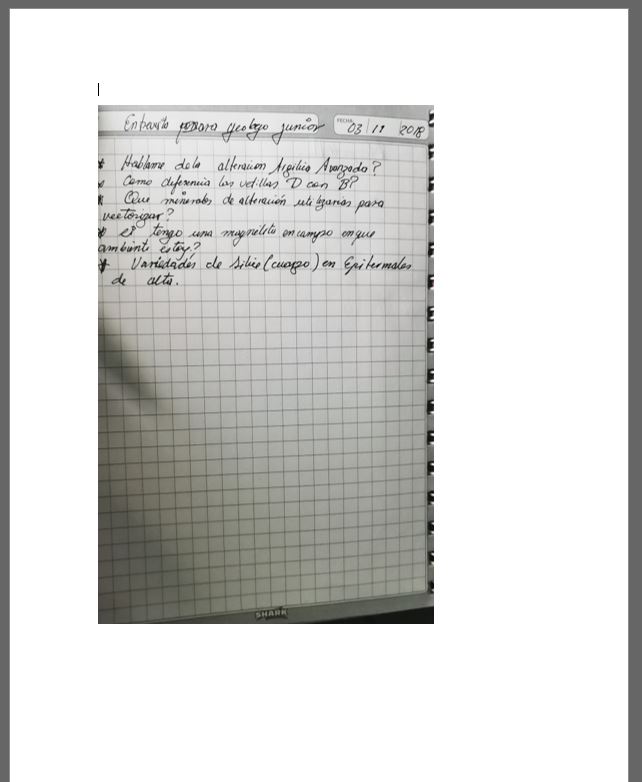 Entrevista para geologo junior
FECHA: 03 / 11 / 2018
* Hablame de la alteracion Argilica Avanzada?
* Como diferencia las vetillas D con B?
* Que minerales de alteración utilizarias para
vectorizar?
* si tengo una magnetita en campo en que
ambiente estoy?
* Variedades de silice (cuarzo) en Epitermales
de alta.
SHARK